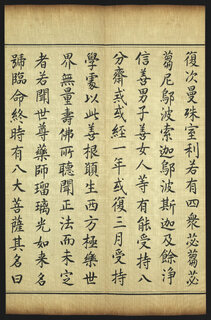 復次曼殊室利若有四衆苾芻苾
芻尼鄔波索迦鄔波斯迦及餘淨
信善男子善女人等有能受持八
分齋戒或經一年或復三月受持
學處以此善根願生西方極樂世
界無量壽佛所聽聞正法而未定
者若聞世尊藥師瑠璃光如來名
號臨命終時有八大菩薩其名曰